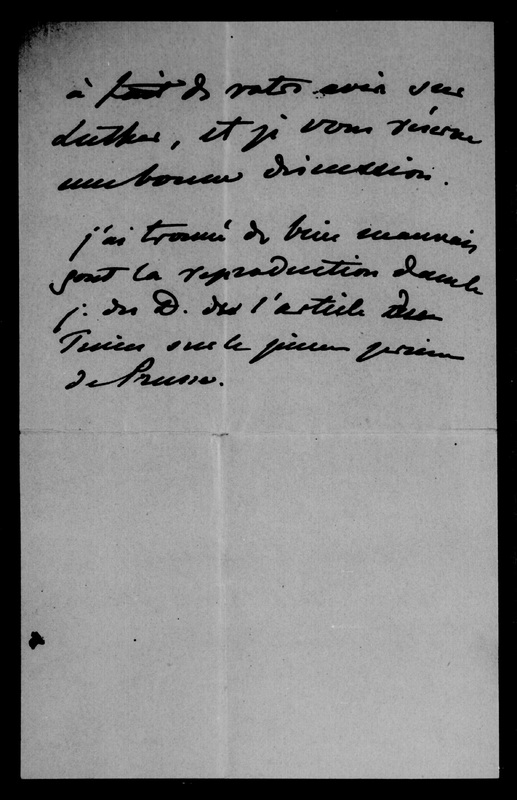 à fait de votre avis sur
Luther, et je vous réserve
une bonne discussion.
j'ai trouvé de bien mauvais
gout la reproduction dans le
j. des D. de l'article du
Times sur le jeune prince
de Prusse.